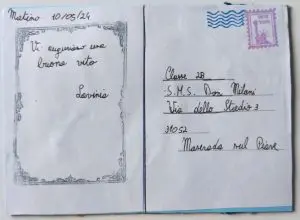 Matino 10/05/24
Vi auguriamo una
buona vita
Lavinia
Classe 2B
S.M.S. Don Milani
Via dello Stadio 3
31052
Maserada sul Piave